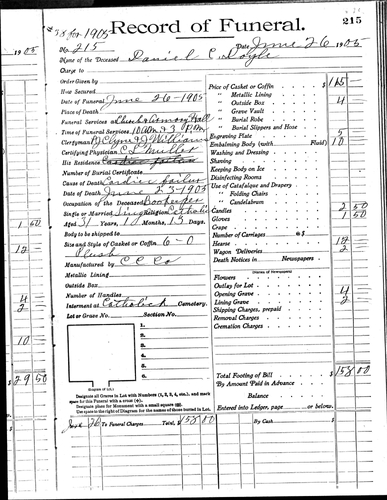 # 28 for 1905
Record of Funeral.
215
1905
No. 215
Date June 26 1905
Name of the Deceased Daniel C Doyle
Charge to
Order Given by
How Secured
Date of Funeral June 26 - 1905
Place of Death
Funeral Services at Church & Armory Hall
Time of Funeral Services 10 AM & 3 P.M.
Clergyman
Certifying Physician C L Muller
His Residence
Number of Burial Certificate
Cause of Death Cardiac failure
Date of Death June 23 - 1905
Occupation of the Deceased Bookeeper
Single or Married Single Religion Catholic
Aged 31 Years, 10 Months, 13 Days.
Body to be shipped to
Size and Style of Casket or Coffin, 6-0
Plush
Manufactured by C C Co
Metallic Lining
Outside Box
Number of Handles
Interment at Catholick Cemetery.
Lot or Grave No. Section No.
1.
2.
3.
4.
5.
6.
(Diagram of Lot.)
Designate all Graves in Lot with Numbers (1, 2, 3, 4, etc.), and mark space for this Funeral with a cross (x).
Designate place for Monument with a small square (□).
Use space to the right of Diagram for the names of those buried in Lot.
Price of Casket or Coffin $ 115
" Metallic Lining
" Outside Box 4
" Grave Vault
" Burial Robe
" Burial Slippers and Hose
Engraving Plate 5
Embalming Body (with Fluid) 10
Washing and Dressing
Shaving
Keeping Body on Ice
Disinfecting Rooms
Use of Catafalque and Drapery
" Folding Chairs
" Candelabrum
Candles 2 50
Gloves 1 50
Crape
Number of Carriages @ $
Hearse 12
Wagon Deliveries 2
Death Notices in Newspapers
(Names of Newspapers)
Flowers
Outlay for Lot
Opening Grave 4
Lining Grave 2
Shipping Charges, prepaid
Removal Charges
Cremation Charges
Total Footing of Bill $ 158 00
By Amount Paid in Advance
Balance
Entered into Ledger, page or below.
1 50
12
4
2
10
$ 29 50
June 26 To Funeral Charges Total, $ 158 00
By Cash $